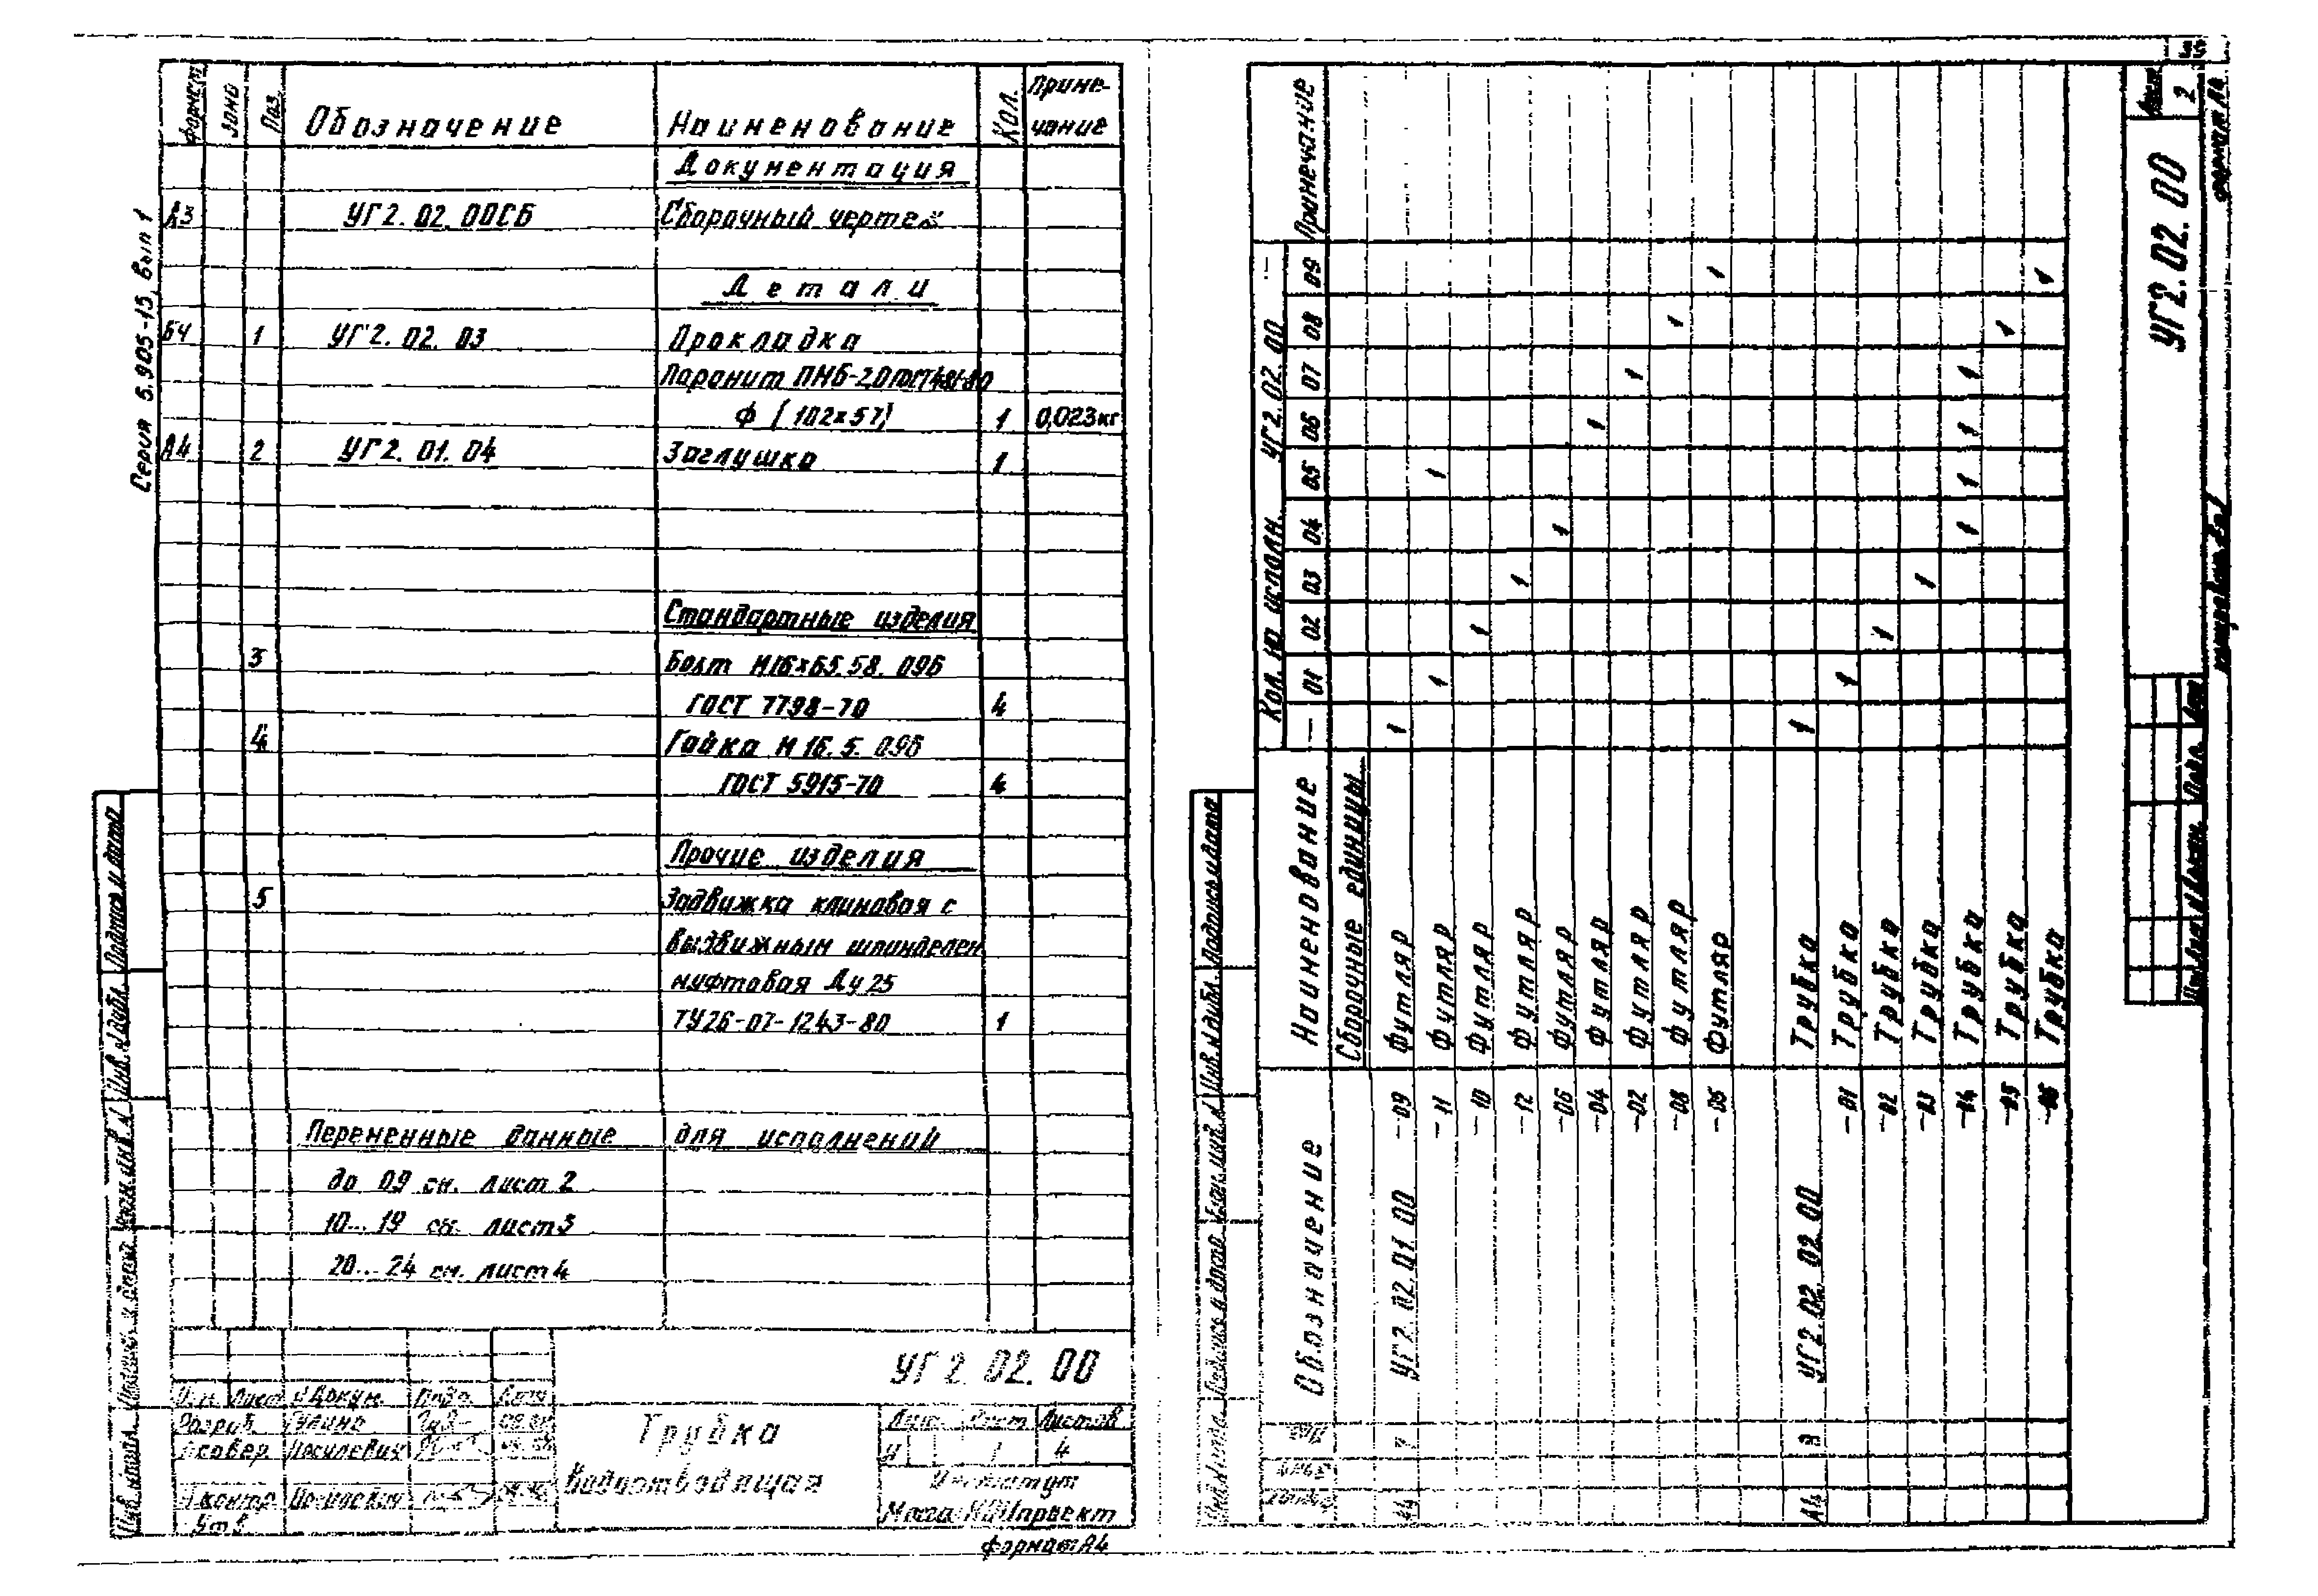 Серия 5.905-15, вып 1
Формат Зона Поз. Обозначение Наименование Кол. Приме-
чание
Документация
А3 УГ2.02.00СБ Сборочный чертеж
Детали
БЧ 1 УГ2.02.03 Прокладка
Паронит ПМБ-2,0 ГОСТ481-80
Ф (102×57) 1 0,023кг
А4 2 УГ2.01.04 Заглушка 1
Стандартные изделия
3 Болт М16×65.58.096
ГОСТ 7798-70 4
4 Гайка М16.5.096
ГОСТ 5915-70 4
Прочие изделия
5 Задвижка клиновая с
выдвижным шпинделем
муфтовая Ду25
ТУ26-07-1243-80 1
Переменные данные для исполнений
до 09 см. лист 2
10...19 см. лист 3
20...24 см. лист 4
Инв.№подл. Подпись и дата Взам.инв.№ Инв.№дубл. Подпись и дата
УГ2.02.00
Изм. Лист №Докум. Подп. Дата
Разраб.
Провер.
Н.контр.
Утв.
Трубка
водоотводящая
Лит. Лист Листов
И 1 4
Институт
МосгазНИИпроект
Формат А4
Формат Зона Поз. Обозначение Наименование Кол. на исполн. УГ2.02.00 – Примечание
– 01 02 03 04 05 06 07 08 09
Сборочные единицы
А4 УГ2.02.01.00 -09 Футляр 1
-11 Футляр 1 1
-10 Футляр 1
-12 Футляр 1
-06 Футляр 1
-04 Футляр 1
-02 Футляр 1
-08 Футляр 1
-05 Футляр 1
А4 УГ2.02.02.00 Трубка 1
-01 Трубка 1
-02 Трубка 1
-03 Трубка 1
-04 Трубка 1 1 1 1
-05 Трубка 1
-06 Трубка 1
Инв.№подл. Подпись и дата Взам.инв.№ Инв.№дубл. Подпись и дата
Изм. Лист №докум. Подп. Дата
УГ2.02.00
Лист
2
Копировал
Формат А4